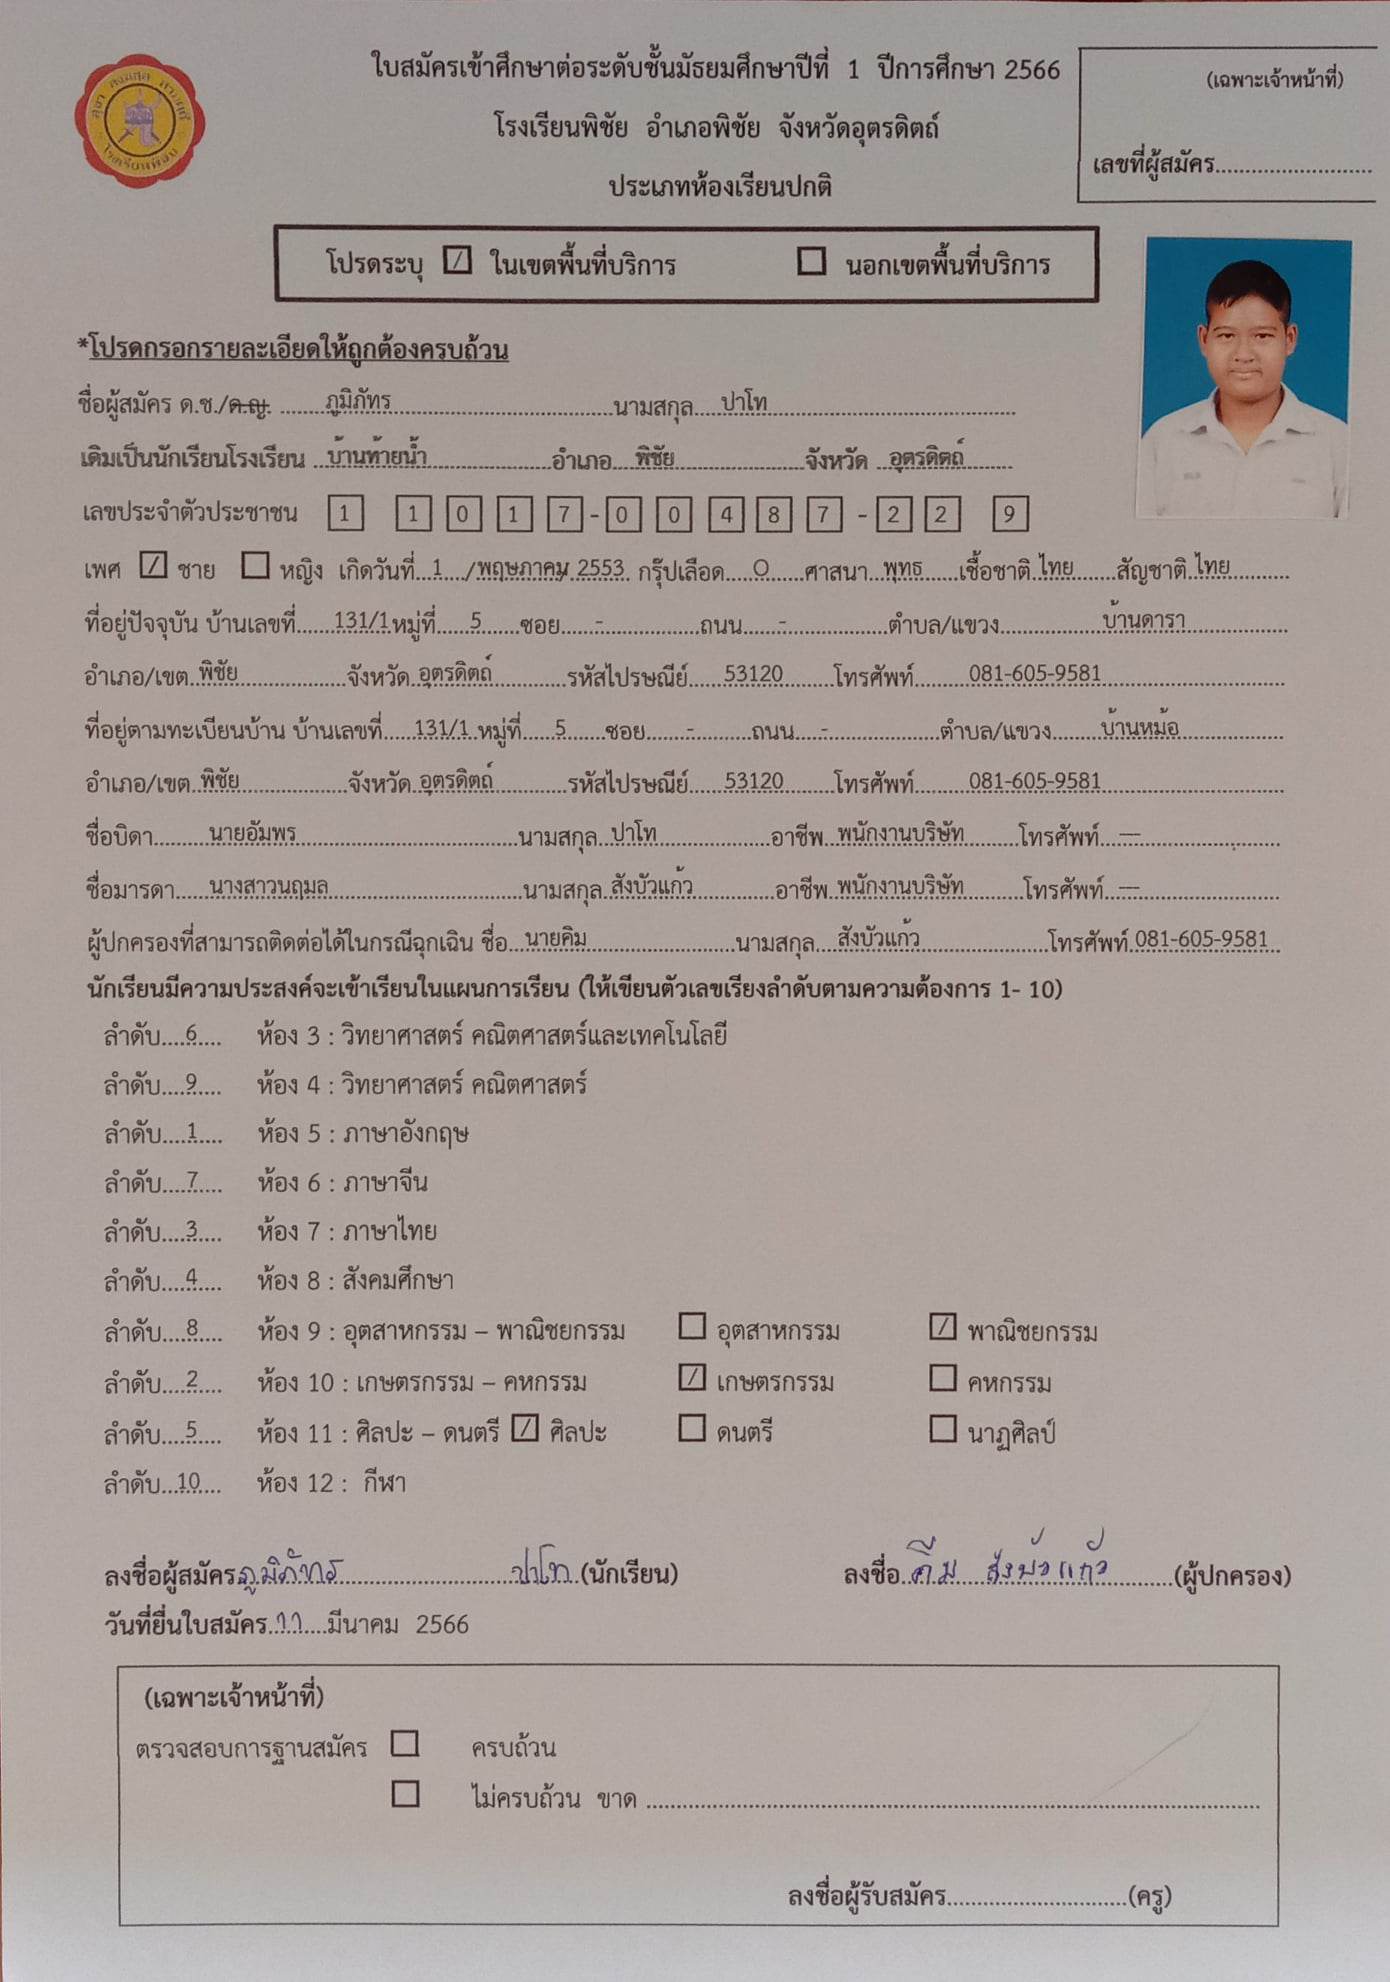 ใบสมัครเข้าศึกษาต่อระดับชั้นมัธยมศึกษาปีที่ 1 ปีการศึกษา 2566
(เฉพาะเจ้าหน้าที่)
โรงเรียนพิชัย อำเภอพิชัย จังหวัดอุตรดิตถ์
เลขที่ผู้สมัคร..........................
ประเภทห้องเรียนปกติ
โรงเรียนพิชัย
โปรดระบุ [/] ในเขตพื้นที่บริการ [ ] นอกเขตพื้นที่บริการ
*โปรดกรอกรายละเอียดให้ถูกต้องครบถ้วน
ชื่อผู้สมัคร ด.ช./ด.ญ. ........ภูมิภัทร.......................นามสกุล.....ปาโท...............................
เดิมเป็นนักเรียนโรงเรียน ..บ้านท้ายน้ำ.....................อำเภอ....พิชัย......................จังหวัด ..อุตรดิตถ์........
เลขประจำตัวประชาชน 1 1 0 1 7 - 0 0 4 8 7 - 2 2 9
เพศ [/] ชาย [ ] หญิง เกิดวันที่...1..../พฤษภาคม/.2553. กรุ๊ปเลือด.....O......ศาสนา...พุทธ......เชื้อชาติ.ไทย.......สัญชาติ.ไทย..........
ที่อยู่ปัจจุบัน บ้านเลขที่.......131/1หมู่ที่......5......ซอย......-................ถนน......-................ตำบล/แขวง.................บ้านดารา.................
อำเภอ/เขต.พิชัย.................จังหวัด.อุตรดิตถ์............รหัสไปรษณีย์......53120........โทรศัพท์.........081-605-9581...........................
ที่อยู่ตามทะเบียนบ้าน บ้านเลขที่.....131/1.หมู่ที่.....5.......ซอย.......-.........ถนน.....-..................ตำบล/แขวง.........บ้านหม้อ.................
อำเภอ/เขต..พิชัย.................จังหวัด.อุตรดิตถ์............รหัสไปรษณีย์......53120........โทรศัพท์.........081-605-9581...........................
ชื่อบิดา..........นายอัมพร...................................นามสกุล..ปาโท..................อาชีพ..พนักงานบริษัท.........โทรศัพท์...---......................
ชื่อมารดา......นางสาวนฤมล..............................นามสกุล.สังบัวแก้ว.............อาชีพ.พนักงานบริษัท..........โทรศัพท์..---......................
ผู้ปกครองที่สามารถติดต่อได้ในกรณีฉุกเฉิน ชื่อ...นายคิม.......................นามสกุล....สังบัวแก้ว.....................โทรศัพท์.081-605-9581..
นักเรียนมีความประสงค์จะเข้าเรียนในแผนการเรียน (ให้เขียนตัวเลขเรียงลำดับตามความต้องการ 1- 10)
ลำดับ....6.... ห้อง 3 : วิทยาศาสตร์ คณิตศาสตร์และเทคโนโลยี
ลำดับ....9.... ห้อง 4 : วิทยาศาสตร์ คณิตศาสตร์
ลำดับ....1.... ห้อง 5 : ภาษาอังกฤษ
ลำดับ....7.... ห้อง 6 : ภาษาจีน
ลำดับ....3.... ห้อง 7 : ภาษาไทย
ลำดับ....4.... ห้อง 8 : สังคมศึกษา
ลำดับ....8.... ห้อง 9 : อุตสาหกรรม – พาณิชยกรรม [ ] อุตสาหกรรม [/] พาณิชยกรรม
ลำดับ....2.... ห้อง 10 : เกษตรกรรม – คหกรรม [/] เกษตรกรรม [ ] คหกรรม
ลำดับ....5.... ห้อง 11 : ศิลปะ – ดนตรี [/] ศิลปะ [ ] ดนตรี [ ] นาฏศิลป์
ลำดับ...10.... ห้อง 12 : กีฬา
ลงชื่อผู้สมัคร.ภูมิภัทร..........................ปาโท.(นักเรียน) ลงชื่อ..คิม สังบัวแก้ว..........(ผู้ปกครอง)
วันที่ยื่นใบสมัคร.11.....มีนาคม 2566
(เฉพาะเจ้าหน้าที่)
ตรวจสอบการฐานสมัคร [ ] ครบถ้วน
[ ] ไม่ครบถ้วน ขาด ....................................................................................
ลงชื่อผู้รับสมัคร..............................(ครู)